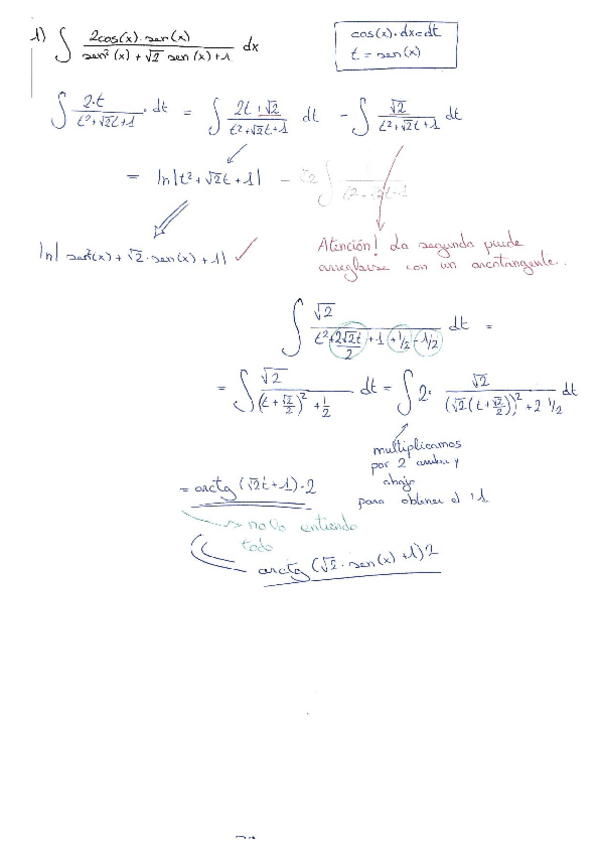 1) ∫ 2cos(x)·sen(x) / sen²(x)+√2 sen(x)+1 dx
cos(x)·dx=dt
t = sen(x)
∫ 2·t / t²+√2t+1 · dt = ∫ 2t+√2 / t²+√2t+1 dt - ∫ √2 / t²+√2t+1 dt
= ln|t²+√2t+1| - √2 ∫ 1 / t²-√2t-1
ln| sen²(x)+√2·sen(x)+1| ✓
Atención! La segunda puede
arreglarse con un arcotangente..
∫ √2 / t²+2√2t/2+1+1/2-1/2 dt =
= ∫ √2 / (t+√2/2)²+1/2 dt = ∫ 2· √2 / (√2(t+√2/2))²+2 1/2 dt
multiplicamos
por 2 arriba y
abajo
para obtener el '1
= arctg (√2t+1)·2
→ no lo entiendo
todo
arctg (√2·sen(x)+1)2